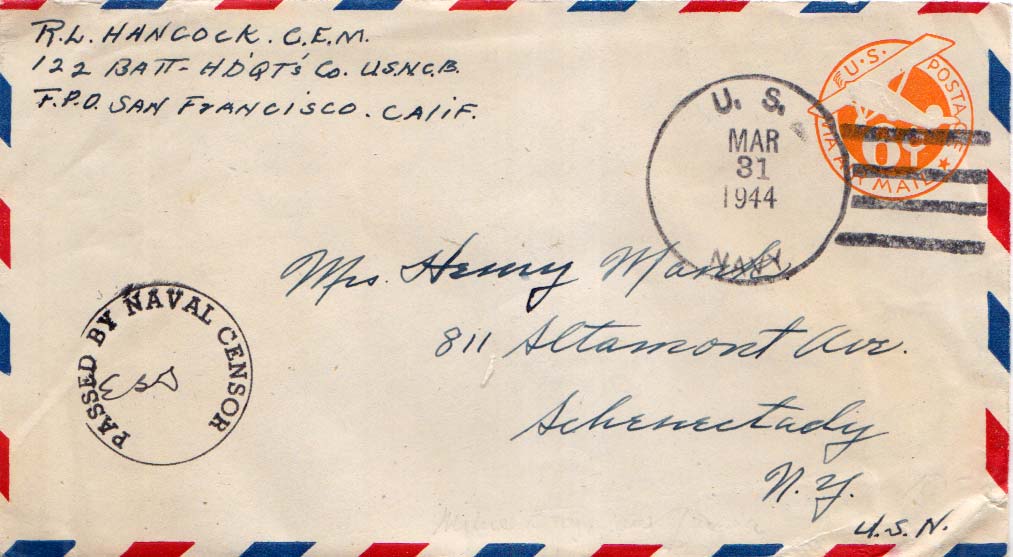 R.L. HANCOCK. C.E.M.
122 BATT- HD'QT'S Co. U.S.N.C.B.
F.P.O. SAN FrANCISCO. CALIF.
U.S. POSTAGE
VIA AIR MAIL
6¢
U. S.
MAR
31
1944
NAVY
Mrs. Henry
811 Altamont Ave.
Schenectady
N.Y.
U.S.N.
PASSED BY NAVAL CENSOR